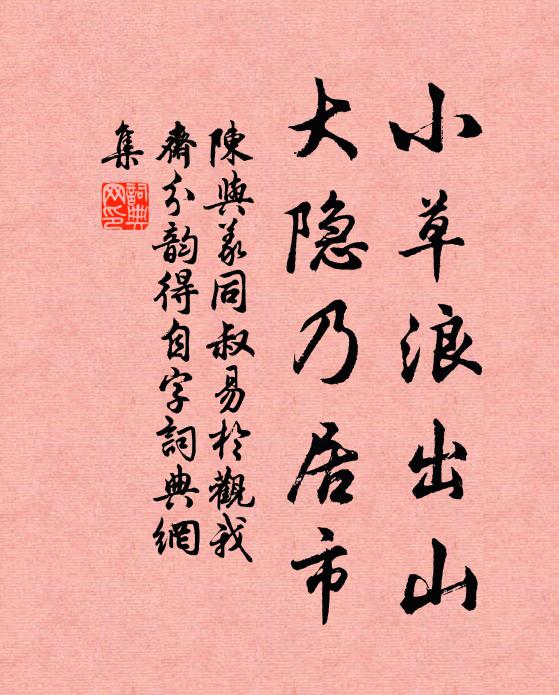 小草浪出山
大隐乃居市
陳與義同叔易於觀我
齋分韵得自字詞典網
集
詞典网印